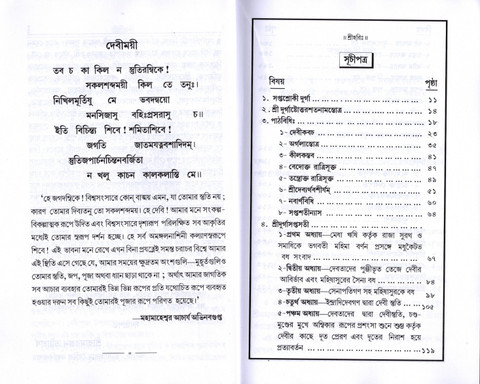 দেবীময়ী
তব চ কা কিল ন স্তুতিরম্বিকে!
সকলশব্দময়ী কিল তে তনুঃ।
নিখিলমূর্তিষু মে ভবদন্বয়ো
মনসিজাসু বহিঃপ্রসরাসু চ॥
ইতি বিচিন্ত্য শিবে! শমিতাশিবে!
জগতি জাতমযত্নবশাদিদম্।
স্তুতিজপার্চনচিন্তনবর্জিতা
ন খলু কাচন কালকলাস্তি মে॥
'হে জগদম্বিকে! বিশ্বসংসারে কোন্ বাঙ্ময় এমন, যা তোমার স্তুতি নয়;
কারণ তোমার দিব্যতনু তো সকলশব্দময়। হে দেবি! আমার মনে সংকল্প-
বিকল্পাত্মক রূপে উদিত এবং বিশ্বসংসারে দৃশ্যরূপে পরিলক্ষিত সব আকৃতির
মধ্যেই তোমার স্বরূপ দর্শন হচ্ছে। হে সর্ব অমঙ্গলনাশিনী কল্যাণস্বরূপে
শিবে! এই ভাবনা মনে রেখে এখন বিনা প্রযত্নেই সমস্ত চরাচর বিশ্বে আমার
এই স্থিতি এসে গেছে যে, আমার সময়ের ক্ষুদ্রতম অংশগুলি—মুহূর্তগুলিও
তোমার স্তুতি, জপ, পূজা অথবা ধ্যান ছাড়া থাকে না; অর্থাৎ আমার জাগতিক
সব আচার ব্যবহার তোমারই ভিন্ন ভিন্ন রূপের প্রতি যথোচিত রূপে ব্যবহৃত
হওয়ার দরুন সব কিছুই তোমারই পূজার রূপে পরিণত হয়েছে।'
—মহামাহেশ্বর আচার্য অভিনবগুপ্ত
॥শ্রীহরিঃ॥
সূচীপত্র
বিষয় পৃষ্ঠা
১. সপ্তশ্লোকী দুর্গা ১১
২. শ্রী দুর্গাষ্টোত্তরশতনামস্তোত্র ১৪
৩. পাঠবিধিঃ ১৮
১-দেবীকবচ ২৩
২-অর্গলাস্তোত্র ৩৫
৩-কীলকস্তব ৪১
৪-বেদোক্ত রাত্রিসূক্ত ৪৫
৫-তন্ত্রোক্ত রাত্রিসূক্ত ৪৭
৬-শ্রীদেব্যথর্বশীর্ষম্ ৫১
৭-নবার্ণবিধি ৬০
৮-সপ্তশতীন্যাস ৬৪
৪. শ্রীদুর্গাসপ্তশতী
১-প্রথম অধ্যায়— মেধা ঋষি কর্তৃক রাজা সুরথ ও
সমাধিকে ভগবতী মহিমা বর্ণন প্রসঙ্গে মধুকৈটভ
বধ সংবাদ ৬৭
২-দ্বিতীয় অধ্যায়—দেবতাদের পুঞ্জীভূত তেজে দেবীর
আবির্ভাব এবং মহিষাসুরের সৈন্য বধ ৮৪
৩-তৃতীয় অধ্যায়—সেনাপতিগণ সহ মহিষাসুরকে বধ ৯৮
৪-চতুর্থ অধ্যায়—ইন্দ্রাদিদেবগণ দ্বারা দেবী স্তুতি ১০৫
৫-পঞ্চম অধ্যায়—দেবতাদের দ্বারা দেবীস্তুতি, চণ্ড-
মুণ্ডের মুখে অম্বিকার রূপের প্রশংসা শুনে শুম্ভ কর্তৃক
দেবীর কাছে দূত প্রেরণ এবং দূতের নিরাশ হয়ে
প্রত্যাবর্তন ১১৯